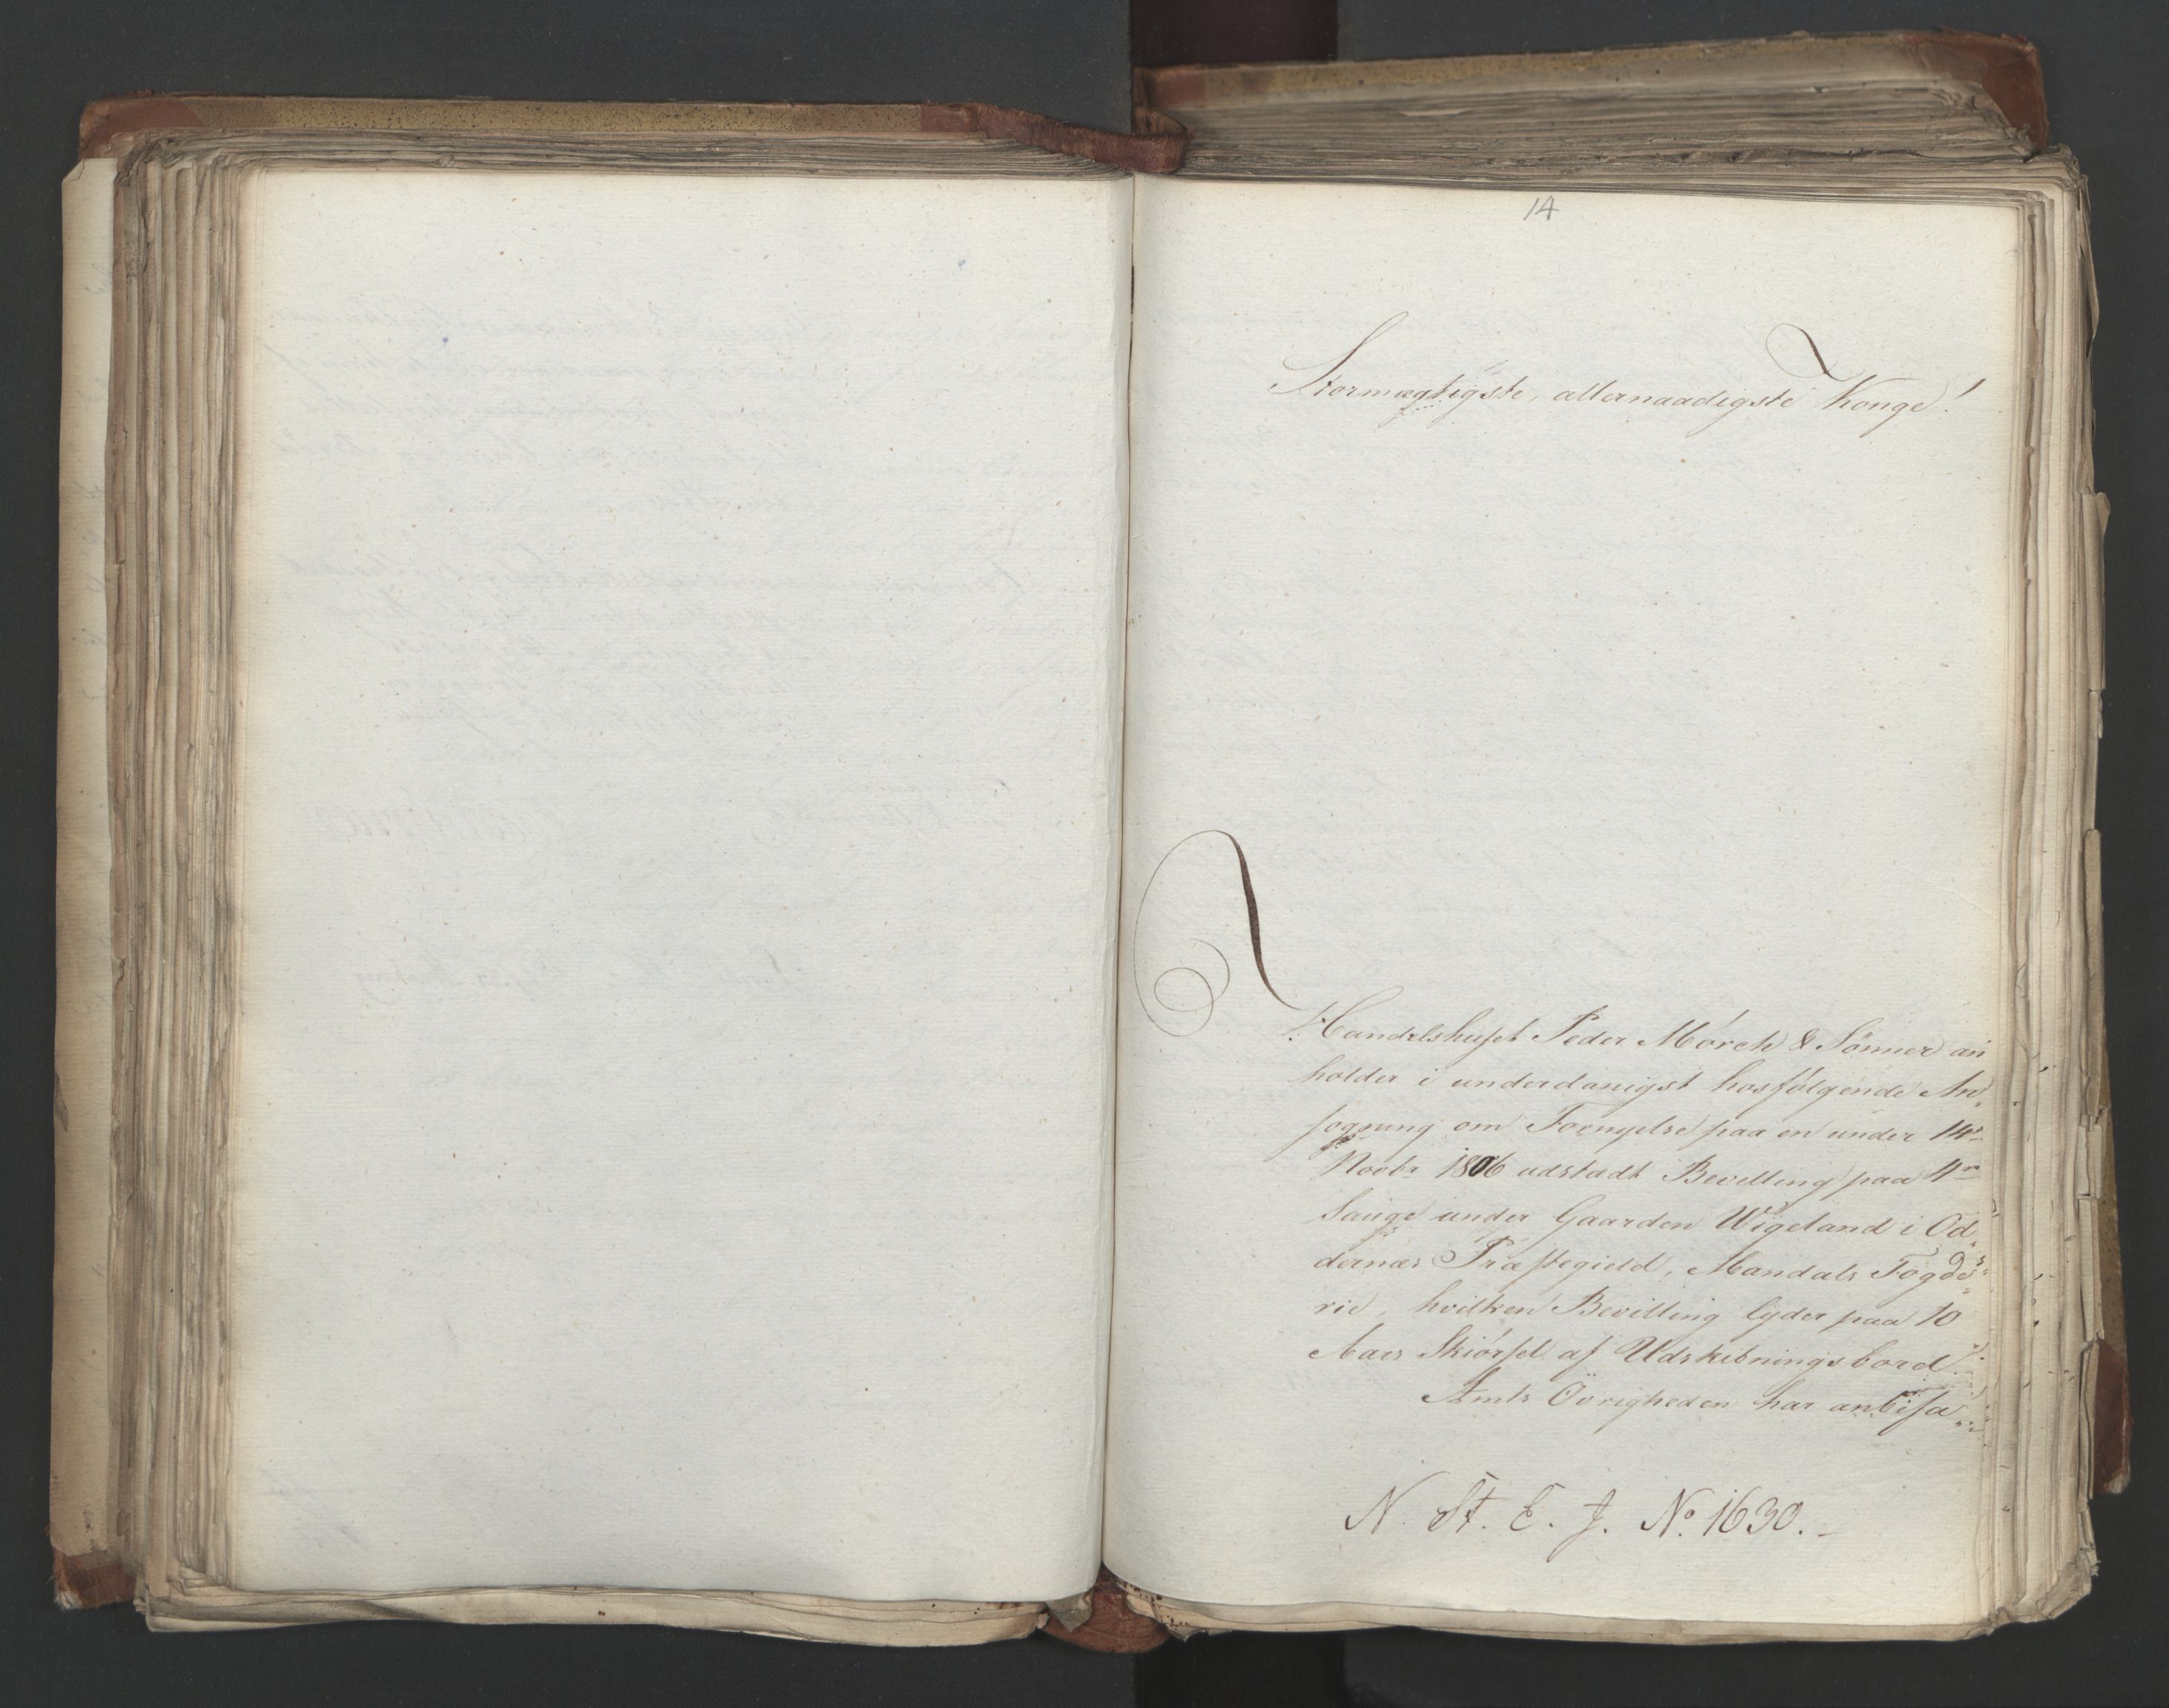 14
Stormægtigste, allernaadigste Konge!
Handelshuset Peder Mörch & Sönner an
holder i underdanigst hosfölgende An„
søgning om Fornyelse paa en under 14de
Novbr 1806 udstædt Bevilling paa
Sauge under Gaarden Wigeland i Od„
dernæs Præstegield, Mandals Fogde„
rie, hvilken Bevilling lyder paa 10
Aars Skiörsel af Udskibningsbord.
Amts Övrigheden har anbefa„
N. St. E. J. No. 1630.